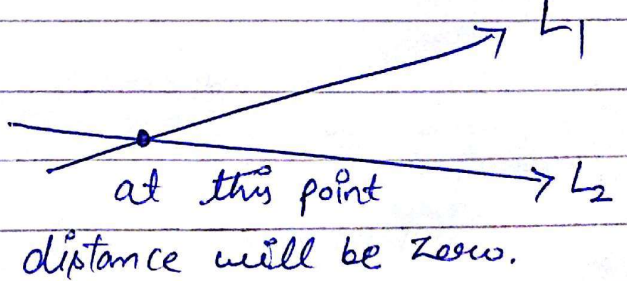 L1
L2
at this point
distance will be zero.